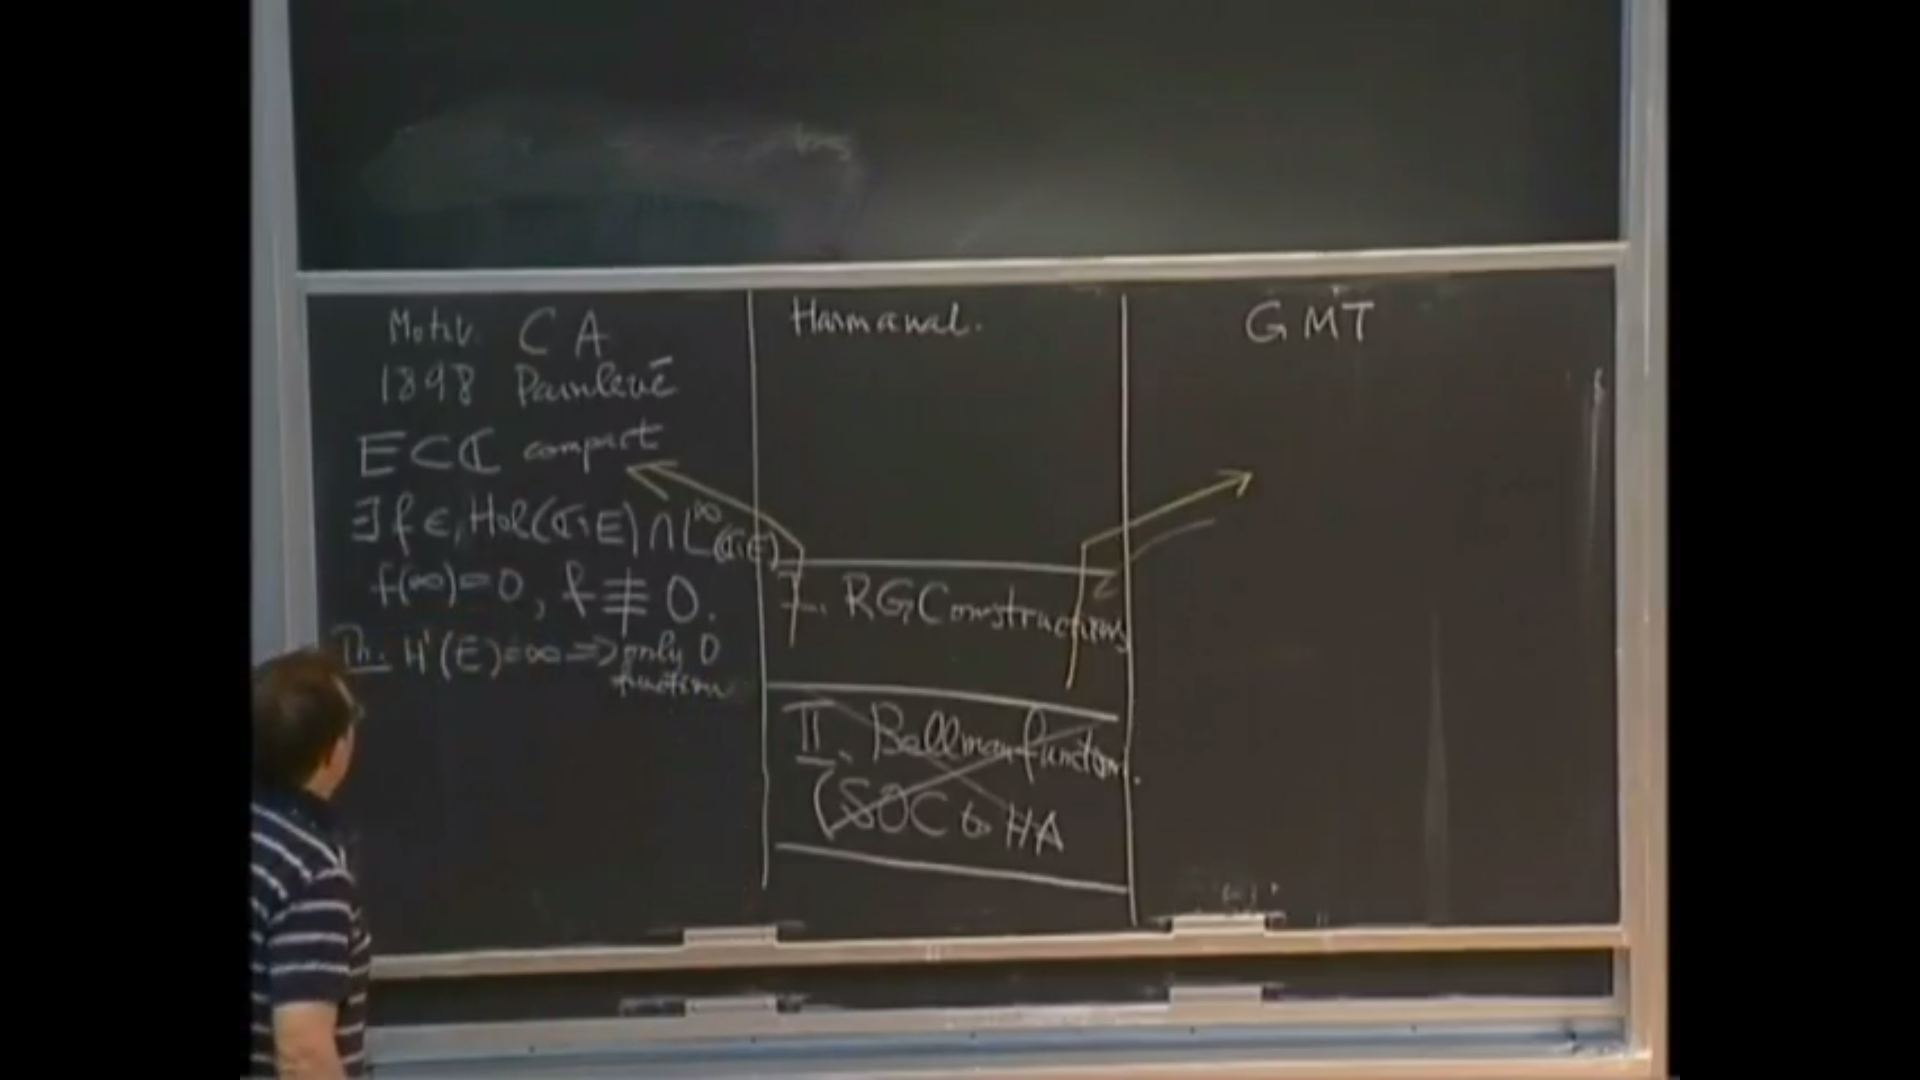 Motiv. CA
1898 Painlevé
E⊂ℂ compact
∃ f ∈ Hol(ℂ\E) ∩ L^∞(ℂ\E)
f(∞)=0, f≢0.
Th. H¹(E)=∞ ⇒ only 0
function
Harm anal.
I. RGConstructions
II. Bellman function.
(SOC to HA
GMT